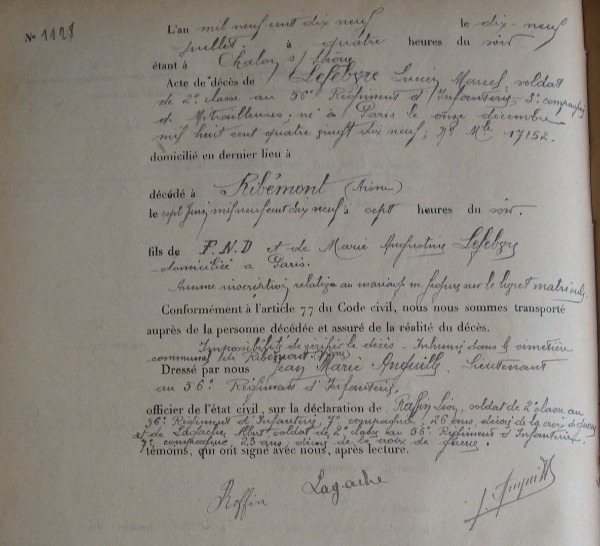 No 1128
L'an mil neuf cent dix neuf le dix-neuf
juillet à quatre heures du soir
étant à Chalon s/ Saône
Acte de décès de Lefebvre Lucien Marcel, soldat
de 2e classe au 56e Régiment d'Infanterie compagnie
de Mitrailleuses; né à Paris le onze décembre
mil huit cent quatre vingt dix neuf; No Mle 17152.
domicilié en dernier lieu à
décédé à Ribémont (Aisne)
le sept Juin mil neuf cent dix neuf à sept heures du soir.
fils de P.N.D et de Marie Augustine Lefebvre
domiciliée à Paris.
Aucune inscription relative au mariage ne figure sur le livret matricule
Conformément à l'article 77 du Code civil, nous nous sommes transporté
auprès de la personne décédée et assuré de la réalité du décès.
Impossibilité de vérifier le décès - Inhumé dans le cimetière
communal de Ribémont (Aisne)
Dressé par nous Jean Marie Lieutenant
au 56e Régiment d'Infanterie,
officier de l'état civil, sur la déclaration de Roffin Léon, soldat de 2e classe au
56e Régiment d'Infanterie, 7e compagnie, 26 ans, décoré de la croix de guerre
et de Lagache Albert soldat de 2e classe au 56e Régiment d'Infanterie
7e compagnie, 25 ans, décoré de la croix de guerre.
témoins, qui ont signé avec nous, après lecture.
Roffin Lagache